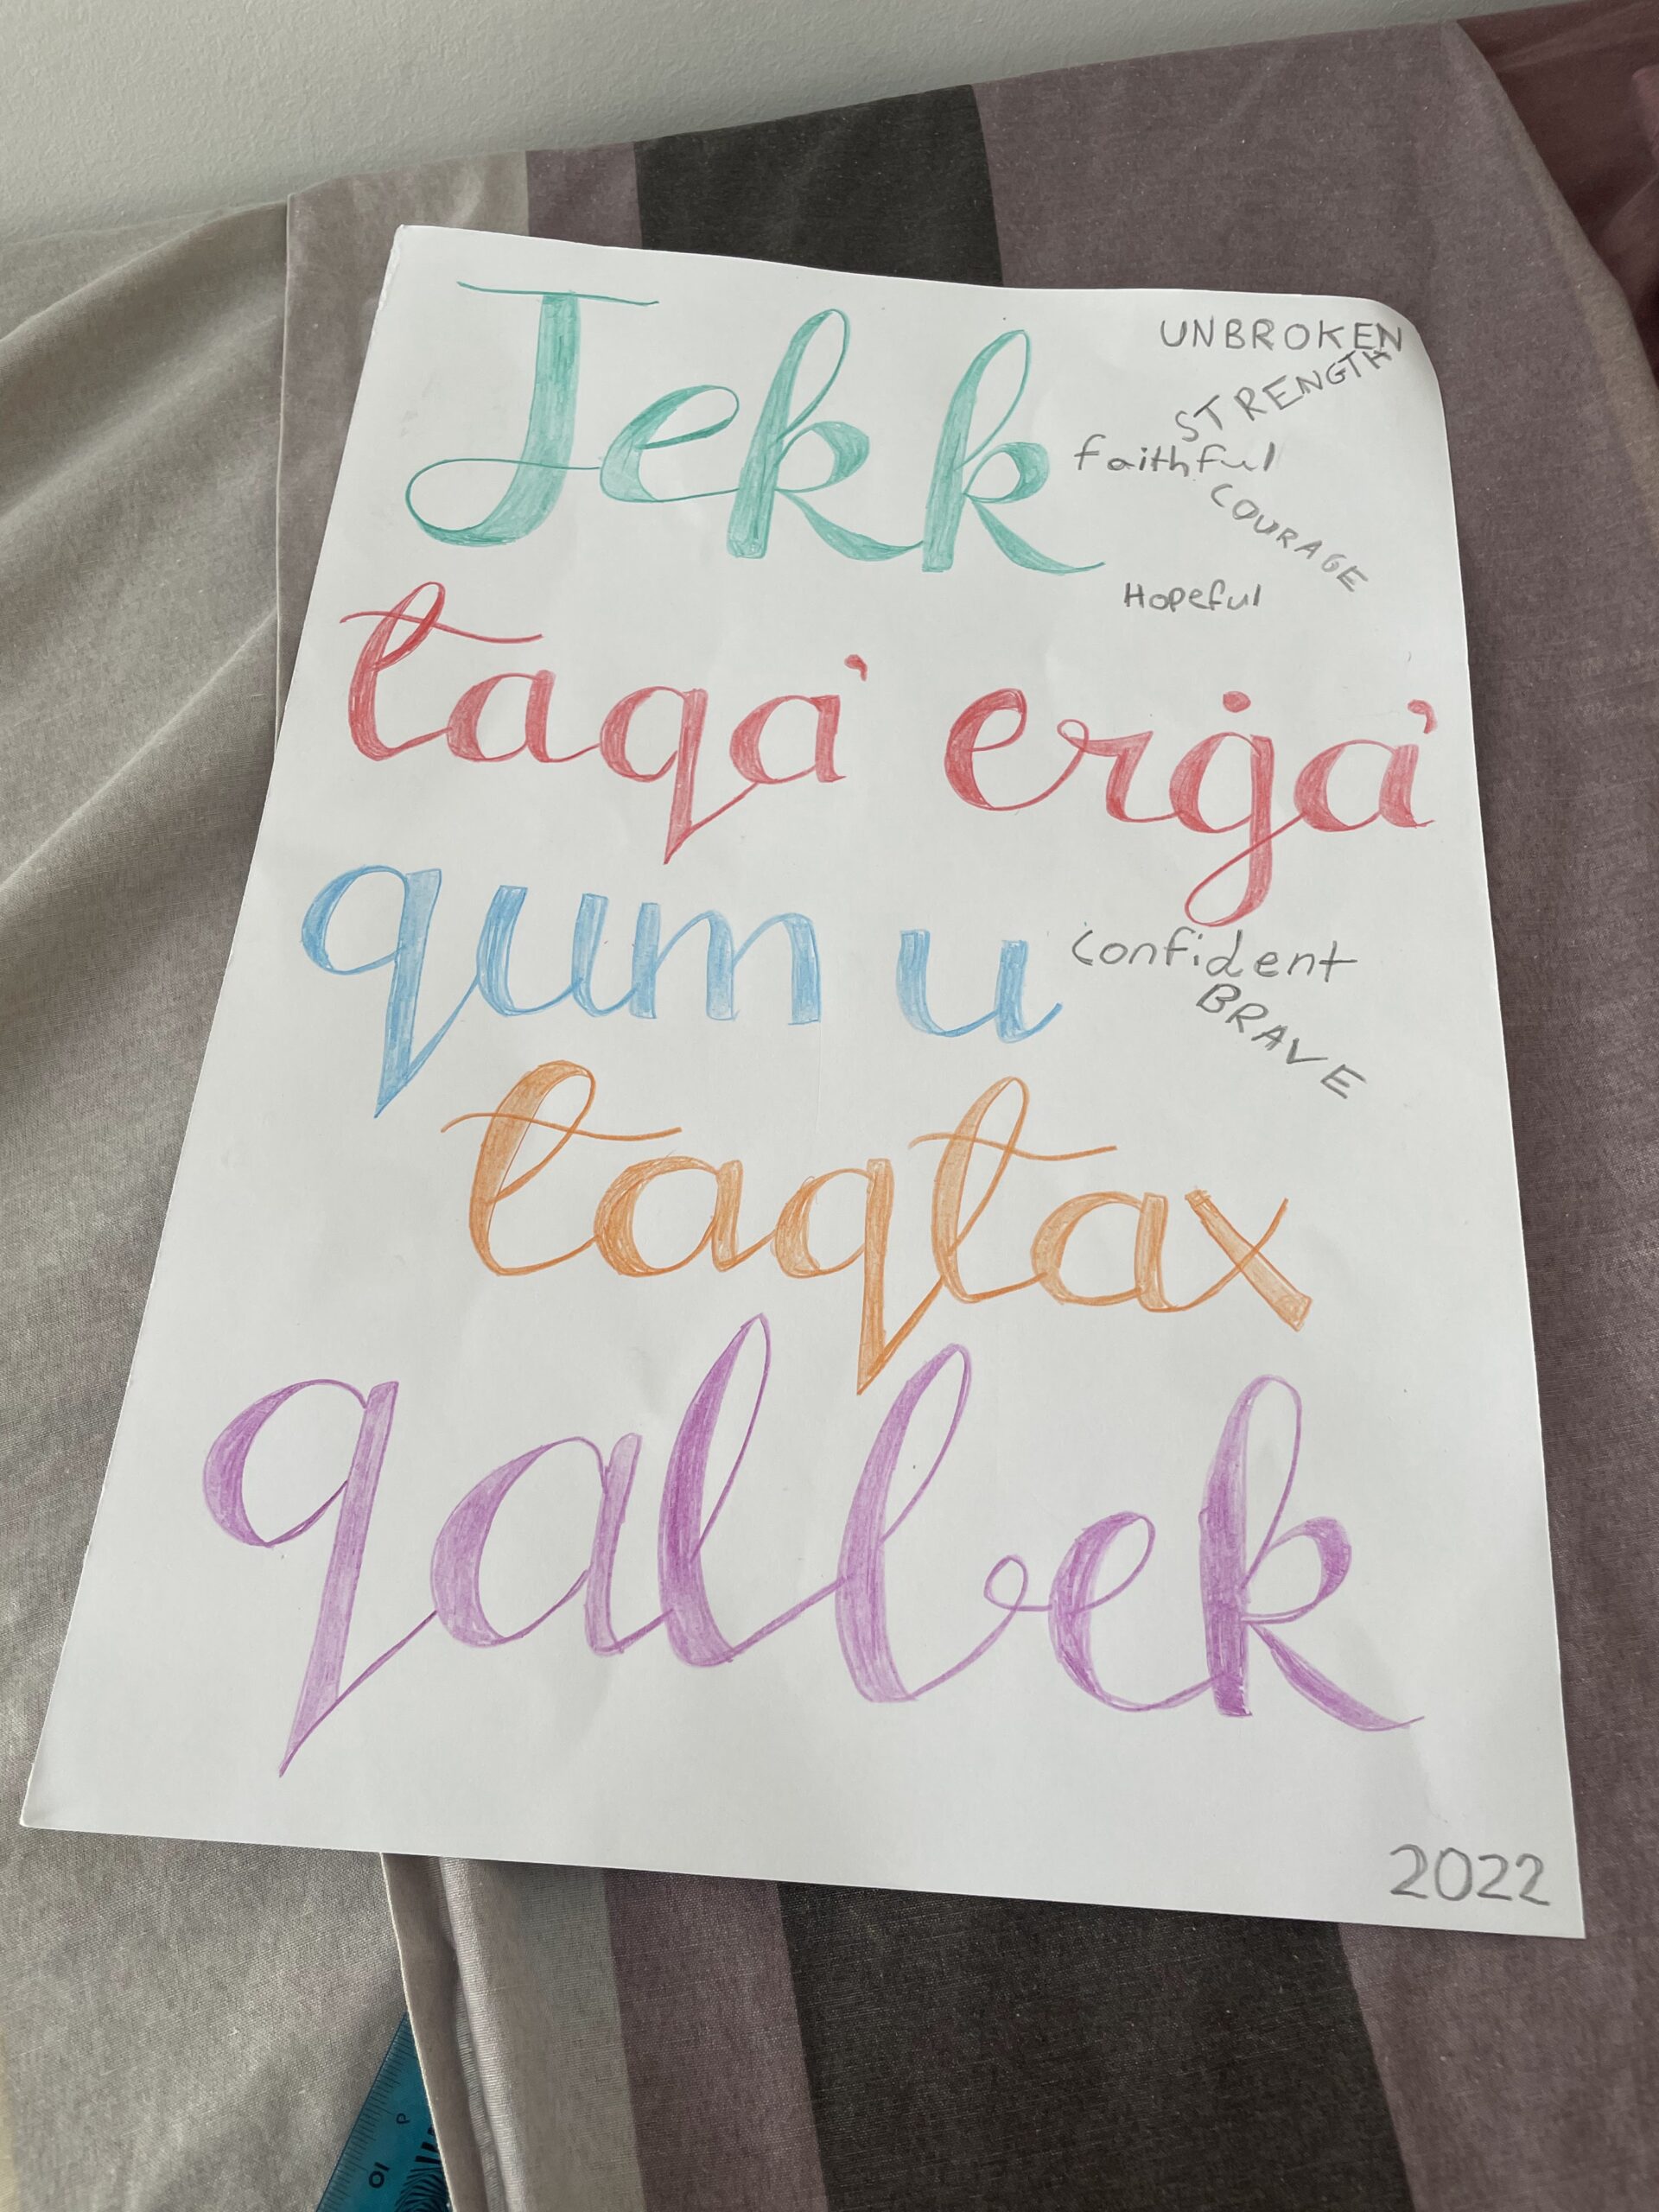 Jekk
UNBROKEN
STRENGTH
faithful
COURAGE
Hopeful
taqa' erġa'
qum u
confident
BRAVE
taqtax
qalbek
2022
10